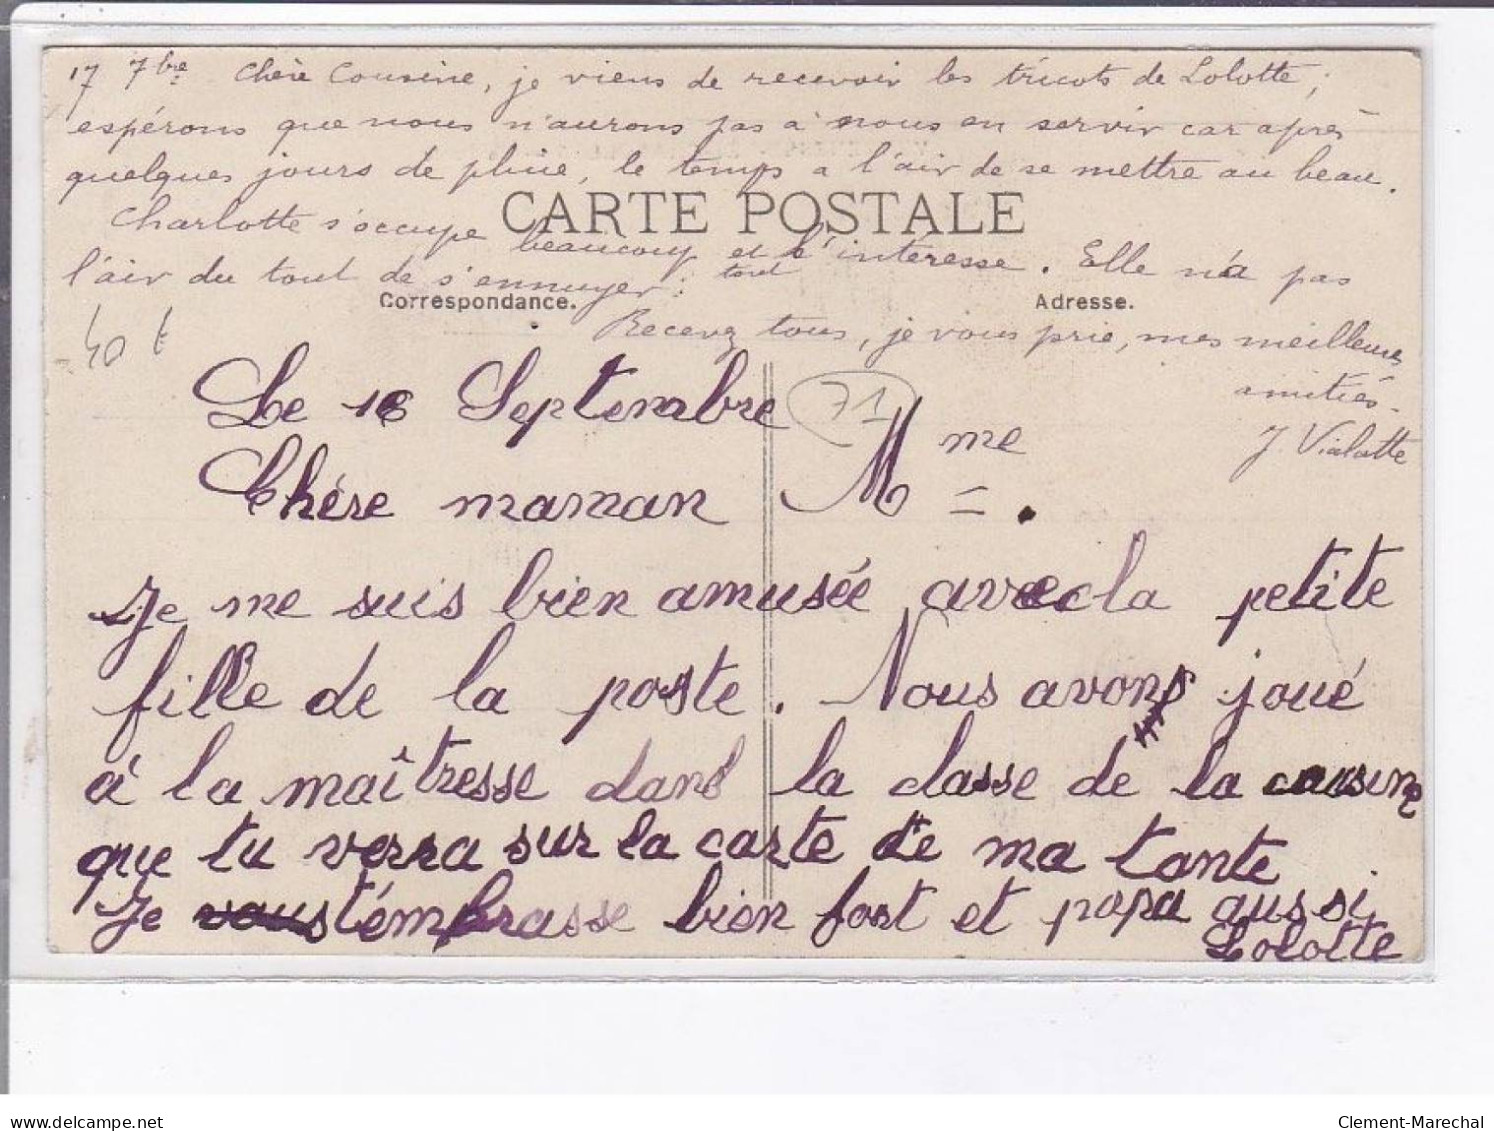 17 7bre Chère Cousine, je viens de recevoir les tricots de Lolotte,
espérons que nous n'aurons pas à nous en servir car après
quelques jours de pluie, le temps a l'air de se mettre au beau.
CARTE POSTALE
Charlotte s'occupe beaucoup et s'intéresse. Elle n'a pas
l'air du tout de s'ennuyer. tout
Correspondance. Adresse.
Recevez tous, je vous prie, mes meilleures
amitiés.
J. Vialatte
40 t
71
Le 16 Septembre
Mme
Chère maman
Je me suis bien amusée avec la petite
fille de la poste. Nous avons joué
à la maîtresse dans la classe de la cousine
que tu verra sur la carte de ma tante
Je vous t'émbrasse bien fort et papa aussi
Lolotte
www.delcampe.net
Clement-Marechal